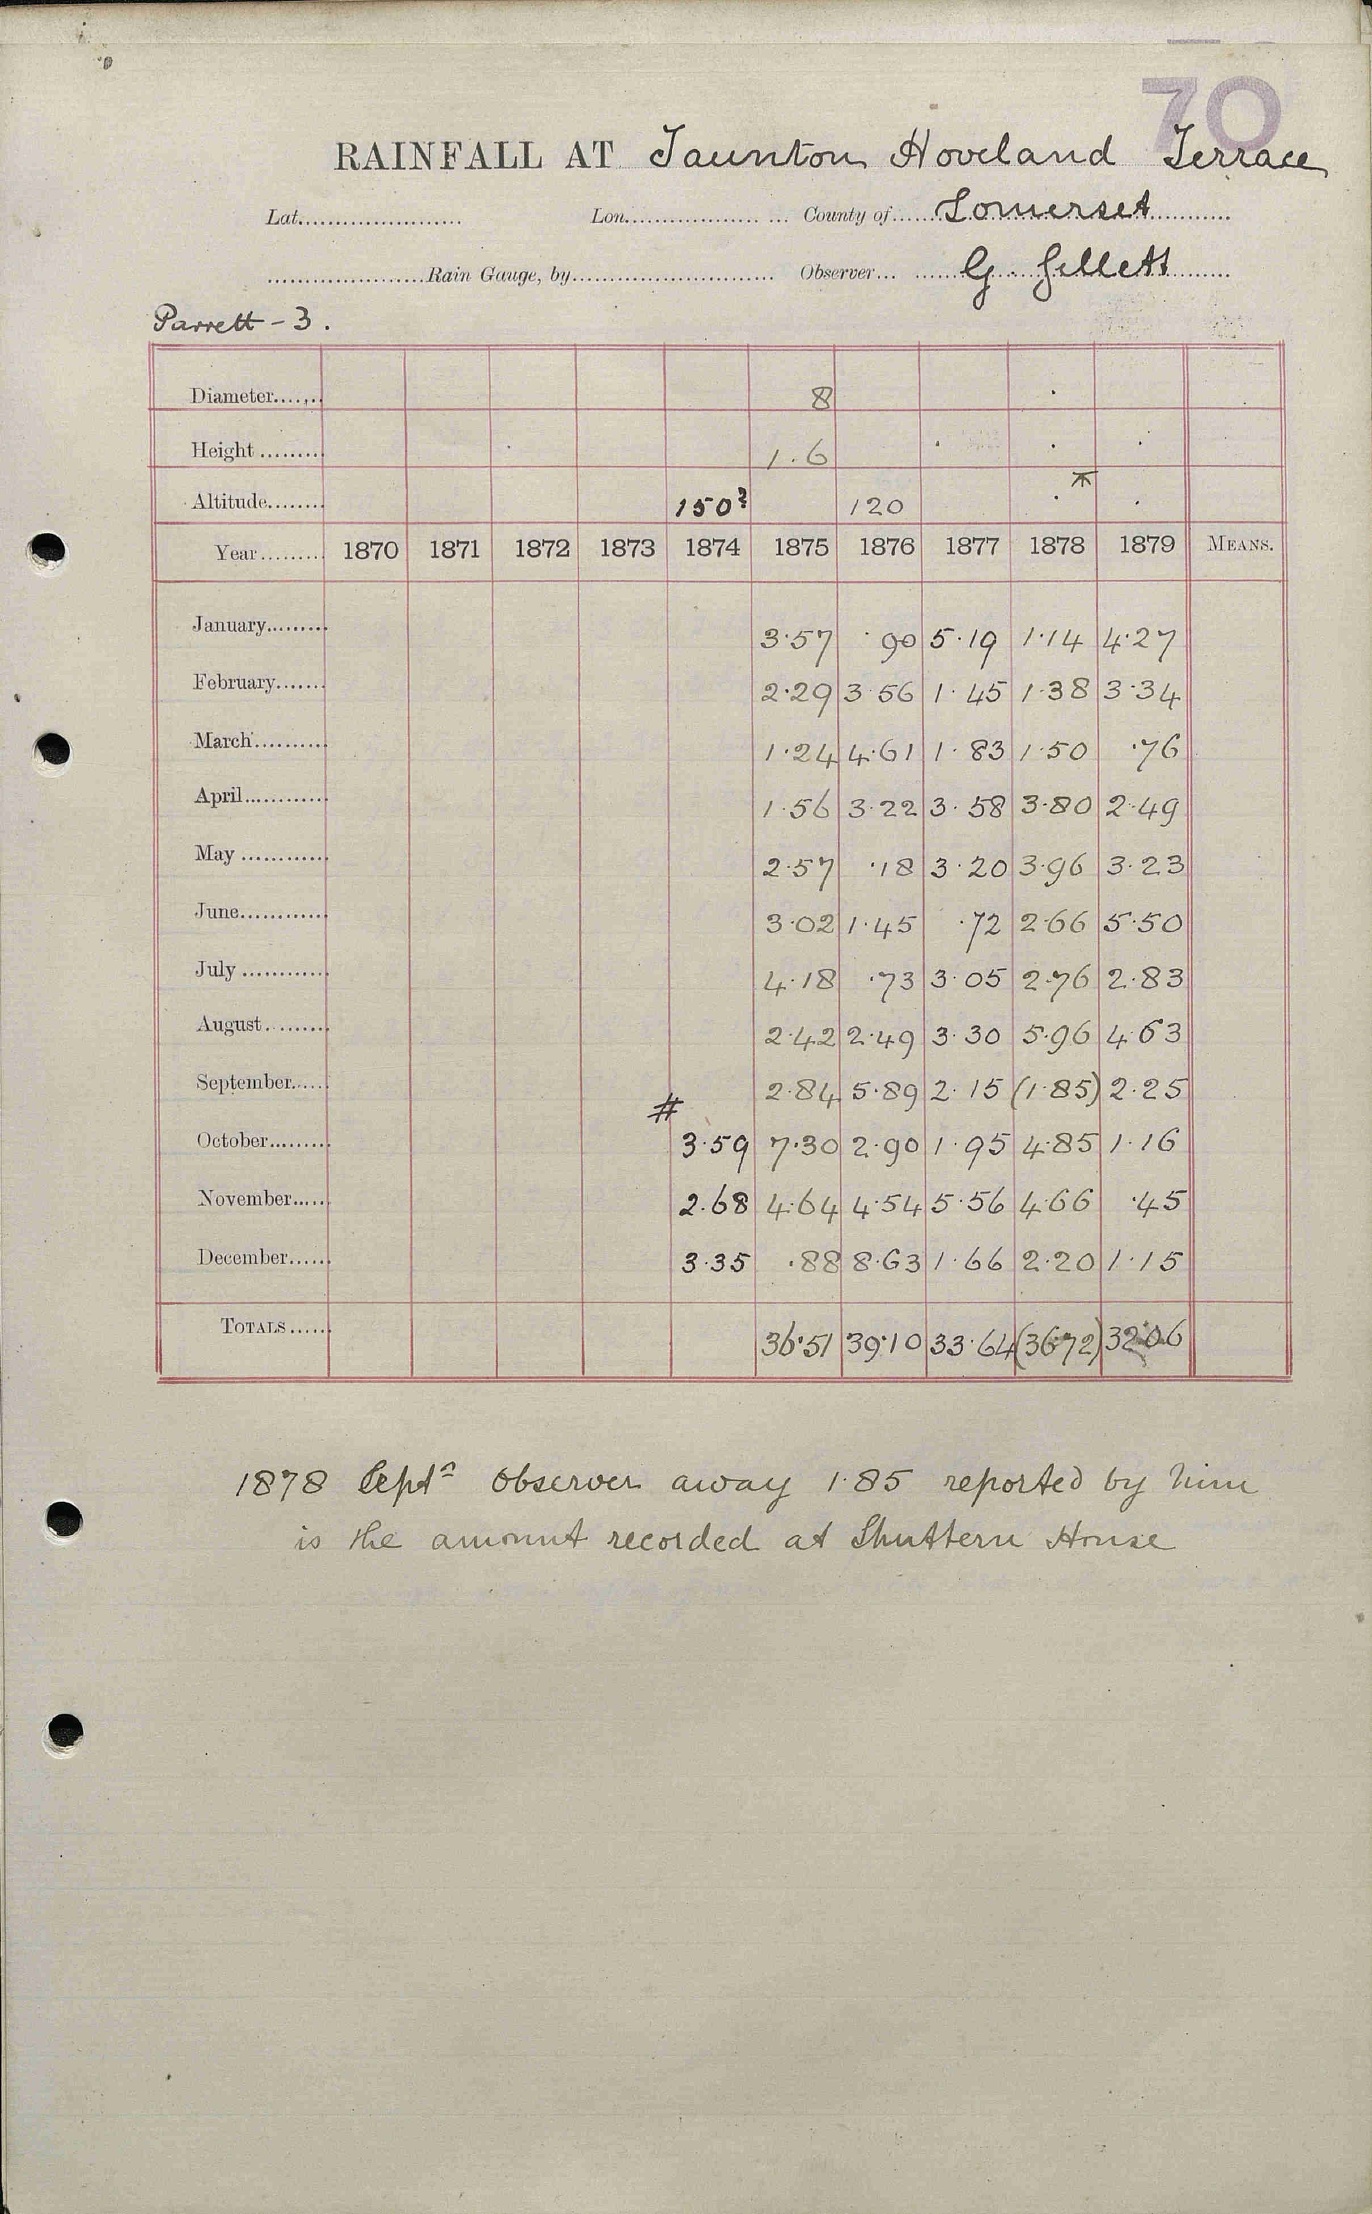 70
RAINFALL AT Taunton Hoveland Terrace
Lat. Lon. County of Somerset
Rain Gauge, by Observer G. Gillett
Parrett - 3.
Diameter 8
Height 1.6
Altitude 150? 120
Year 1870 1871 1872 1873 1874 1875 1876 1877 1878 1879 MEANS.
January 3.57 .90 5.19 1.14 4.27
February 2.29 3.56 1.45 1.38 3.34
March 1.24 4.61 1.83 1.50 .76
April 1.56 3.22 3.58 3.80 2.49
May 2.57 .18 3.20 3.96 3.23
June 3.02 1.45 .72 2.66 5.50
July 4.18 .73 3.05 2.76 2.83
August 2.42 2.49 3.30 5.96 4.63
September 2.84 5.89 2.15 (1.85) 2.25
#
October 3.59 7.30 2.90 1.95 4.85 1.16
November 2.68 4.64 4.54 5.56 4.66 .45
December 3.35 .88 8.63 1.66 2.20 1.15
TOTALS 36.51 39.10 33.64 (36.72) 32.06
1878 Septr Observer away 1.85 reported by him
is the amount recorded at Shuttern House